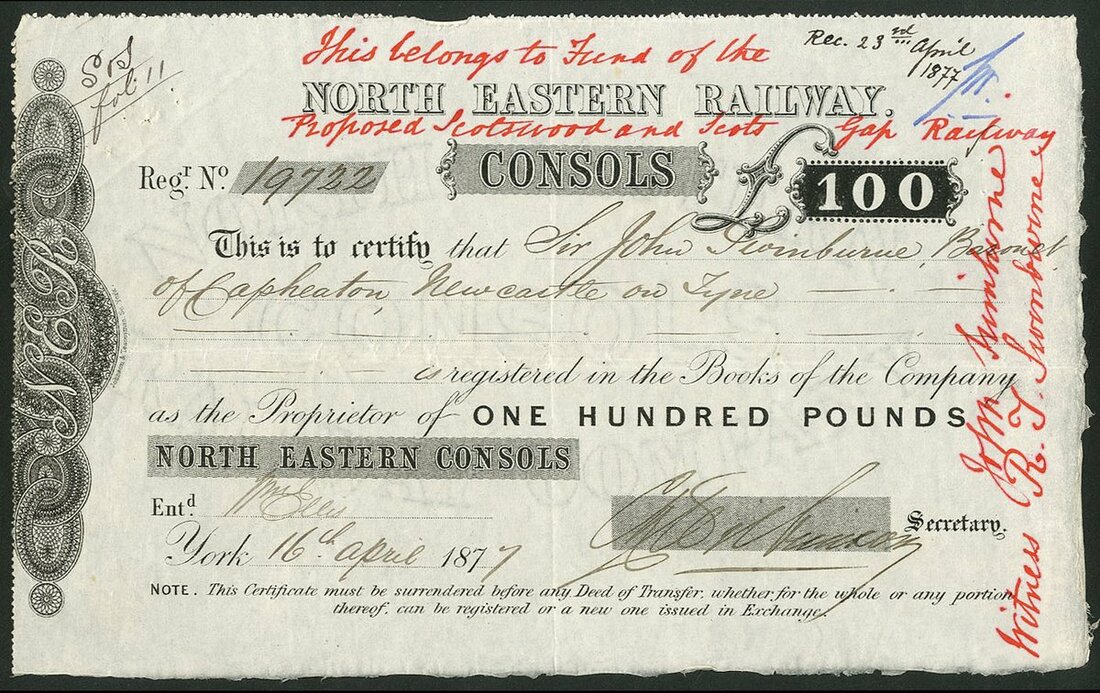 S&S
fol 11
This belongs to Fund of the
Rec. 23rd April
1877
NORTH EASTERN RAILWAY.
Proposed Scotswood and Scots Gap Railway
Regr. No. 19722
CONSOLS
£100
This is to certify that Sir John Swinburne, Baronet
of Capheaton, Newcastle on Tyne
is registered in the Books of the Company
as the Proprietor of ONE HUNDRED POUNDS
NORTH EASTERN CONSOLS
Entd.
Secretary.
York 16th April 1877
NOTE. This Certificate must be surrendered before any Deed of Transfer, whether for the whole or any portion
thereof, can be registered or a new one issued in Exchange.
John Swinburne
Witness R. T. Swinburne
N E R